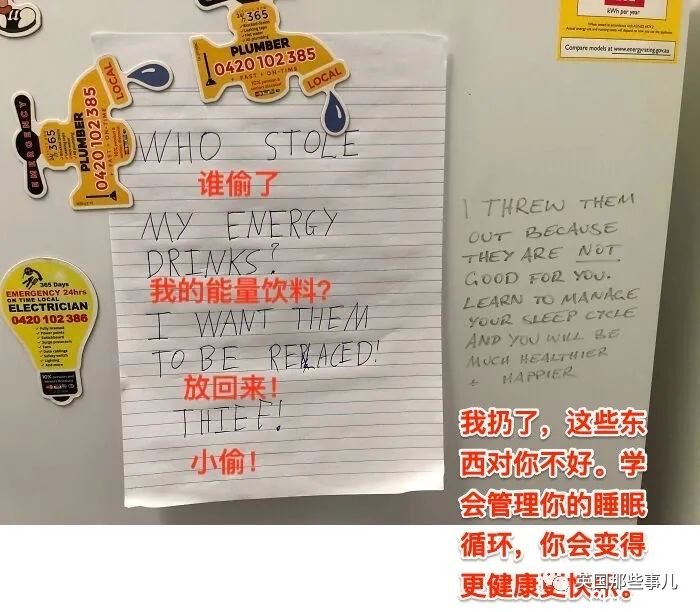 365
PLUMBER
0420 102 385
FAST • ON-TIME
LOCAL
EMERGENCY
365
PLUMBER
0420 102 385
FAST • ON-TIME
LOCAL
kWh per year
Compare models at www.energyrating.gov.au
WHO STOLE
谁偷了
MY ENERGY
DRINKS?
我的能量饮料?
I WANT THEM
TO BE REPLACED!
放回来!
THIEF!
小偷!
365 Days
EMERGENCY 24hrs
ON TIME LOCAL
ELECTRICIAN
0420 102 386
Power points
Switchboard
Surge protectors
Fans
Data cabling
Safety switch
Lighting
And more
I THREW THEM
OUT BECAUSE
THEY ARE NOT
GOOD FOR YOU.
LEARN TO MANAGE
YOUR SLEEP CYCLE
AND YOU WILL BE
MUCH HEALTHIER
+ HAPPIER
我扔了，这些东
西对你不好。学
会管理你的睡眠
循环，你会变得
更健康更快乐。
英国那些事儿